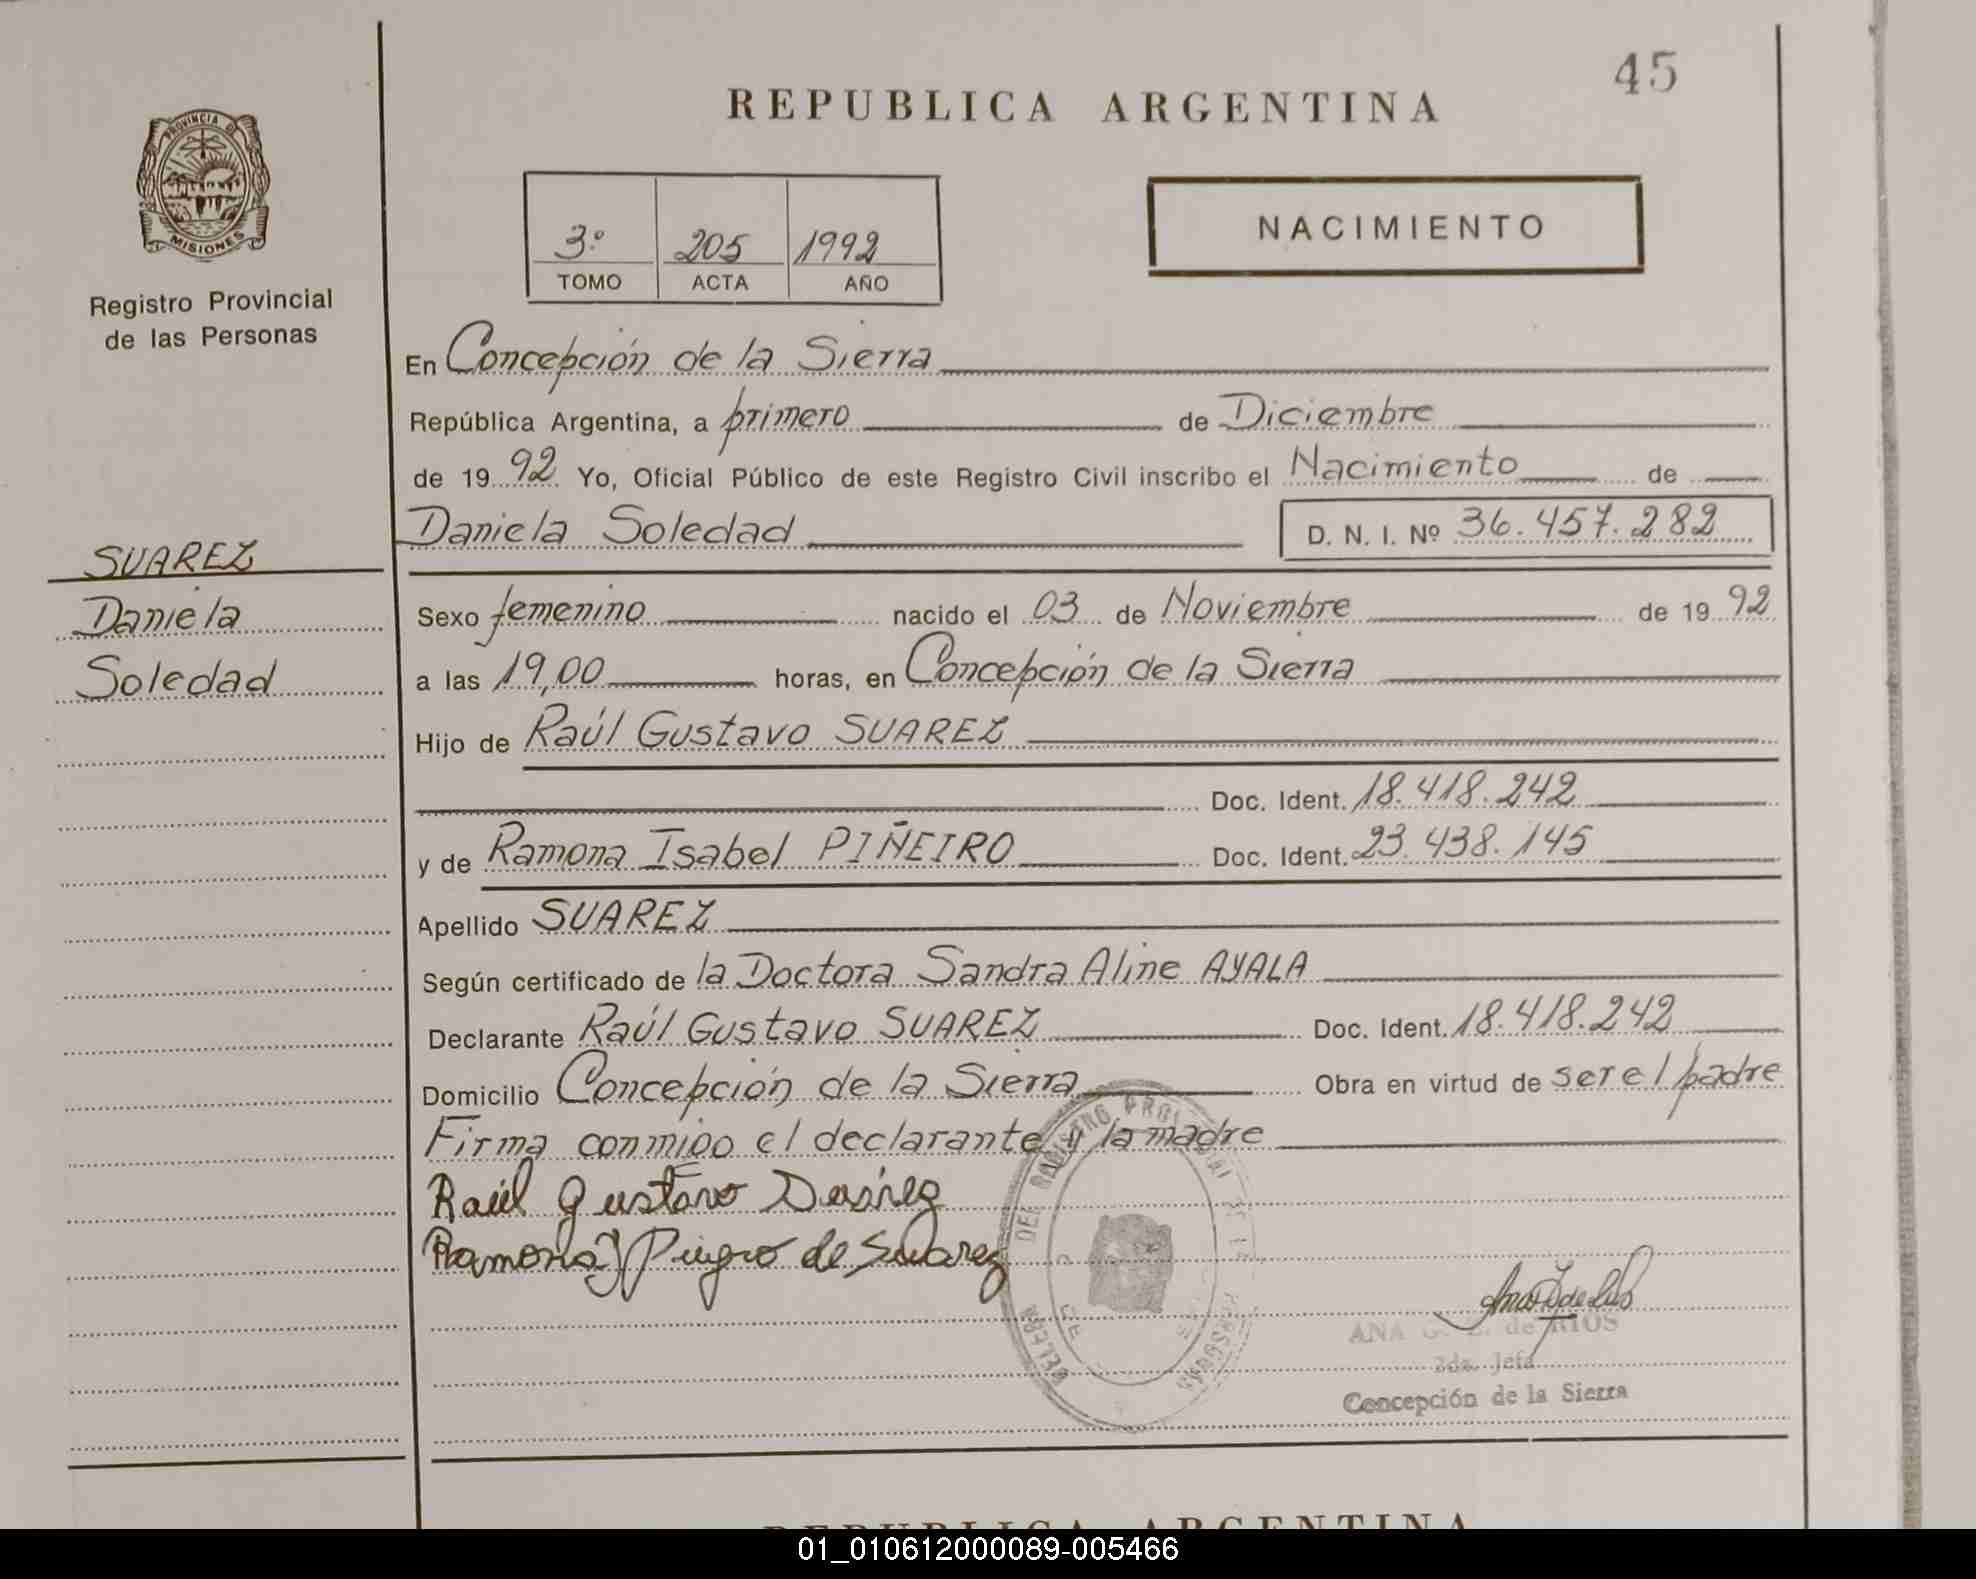 45
REPUBLICA ARGENTINA
PROVINCIA DE
MISIONES
Registro Provincial
de las Personas
3º 205 1992
TOMO ACTA AÑO
NACIMIENTO
En Concepción de la Sierra
República Argentina, a primero de Diciembre
de 1992 Yo, Oficial Público de este Registro Civil inscribo el Nacimiento de
Daniela Soledad D. N. I. Nº 36.457.282
SUAREZ
Daniela
Soledad
Sexo femenino nacido el 03 de Noviembre de 1992
a las 19,00 horas, en Concepción de la Sierra
Hijo de Raúl Gustavo SUAREZ
Doc. Ident. 18.418.242
y de Ramona Isabel PIÑEIRO Doc. Ident. 23.438.145
Apellido SUAREZ
Según certificado de la Doctora Sandra Aline AYALA
Declarante Raúl Gustavo SUAREZ Doc. Ident. 18.418.242
Domicilio Concepción de la Sierra Obra en virtud de ser el padre
Firma conmigo el declarante y la madre
Raúl Gustavo Suárez
Ramona de Suarez
DEL REGISTRO PROVINCIAL DE LAS PERSONAS
ANA G. de RIOS
2da. Jefa
Concepción de la Sierra
REPUBLICA ARGENTINA
01_010612000089-005466